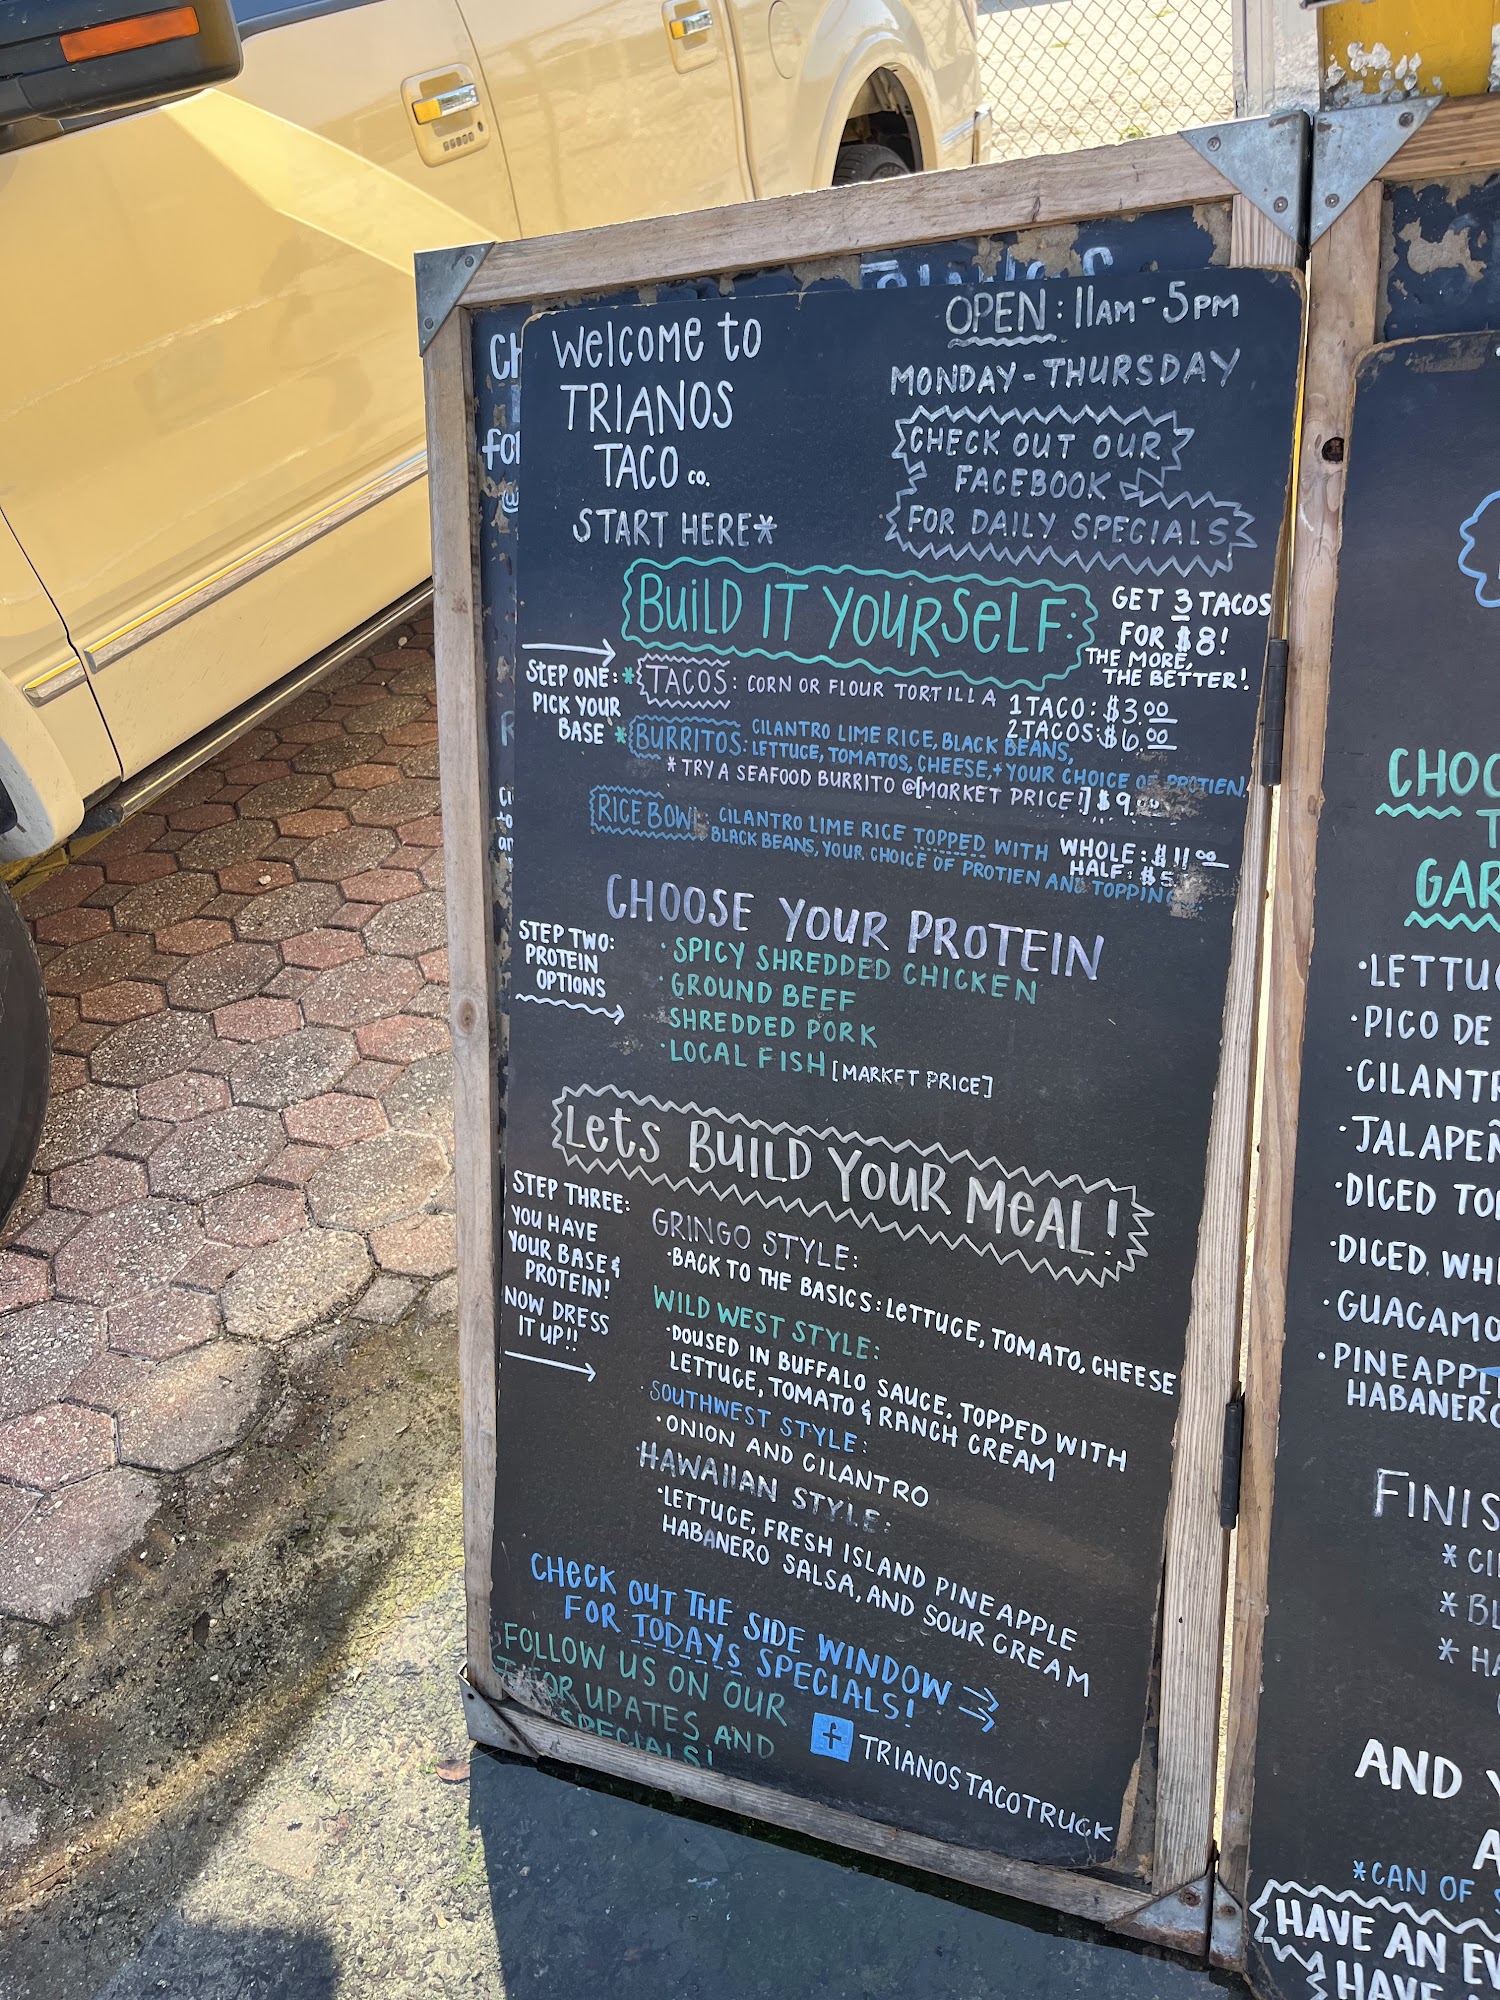 Welcome to
TRIANOS
TACO CO.
START HERE*
OPEN: 11AM-5PM
MONDAY-THURSDAY
CHECK OUT OUR
FACEBOOK
FOR DAILY SPECIALS
BUILD IT YOURSELF:
GET 3 TACOS
FOR $8!
THE MORE,
THE BETTER!
STEP ONE:
PICK YOUR
BASE
*TACOS: CORN OR FLOUR TORTILLA
1 TACO: $3.00
2 TACOS: $6.00
*BURRITOS: CILANTRO LIME RICE, BLACK BEANS,
LETTUCE, TOMATOS, CHEESE, + YOUR CHOICE OF PROTIEN!
*TRY A SEAFOOD BURRITO @[MARKET PRICE!] $9.00
RICE BOWL: CILANTRO LIME RICE TOPPED WITH
BLACK BEANS, YOUR CHOICE OF PROTIEN AND TOPPING
WHOLE: $11.00
HALF: $5
CHOOSE YOUR PROTEIN
STEP TWO:
PROTEIN
OPTIONS
·SPICY SHREDDED CHICKEN
·GROUND BEEF
·SHREDDED PORK
·LOCAL FISH [MARKET PRICE]
LETS BUILD YOUR MEAL!
STEP THREE:
YOU HAVE
YOUR BASE &
PROTEIN!
NOW DRESS
IT UP!!
GRINGO STYLE:
·BACK TO THE BASICS: LETTUCE, TOMATO, CHEESE
WILD WEST STYLE:
·DOUSED IN BUFFALO SAUCE, TOPPED WITH
LETTUCE, TOMATO & RANCH CREAM
·SOUTHWEST STYLE:
·ONION AND CILANTRO
HAWAIIAN STYLE:
·LETTUCE, FRESH ISLAND PINEAPPLE
HABANERO SALSA, AND SOUR CREAM
CHECK OUT THE SIDE WINDOW
FOR TODAYS SPECIALS!
FOLLOW US ON OUR
FOR UPATES AND
SPECIALS!
f TRIANOSTACOTRUCK
CHOO
GAR
·LETTUC
·PICO DE
·CILANTR
·JALAPEÑ
·DICED TO
·DICED WHI
·GUACAMO
·PINEAPPL
HABANERO
FINIS
* CI
* BL
* HA
AND
*CAN OF
HAVE AN EV
HAVE